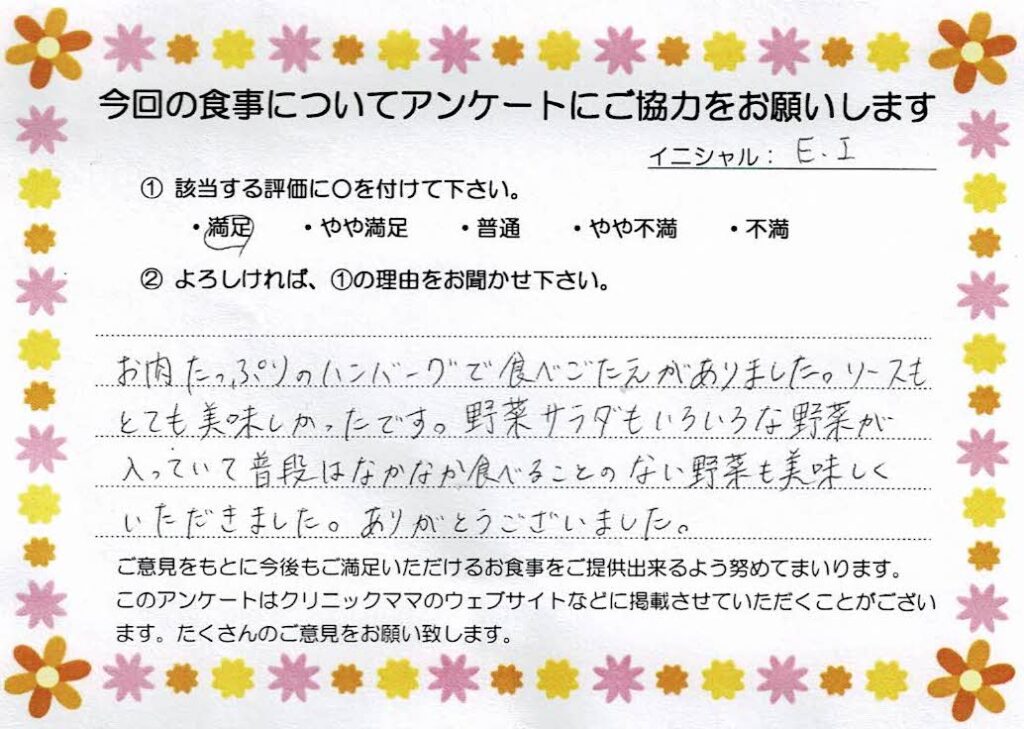 今回の食事についてアンケートにご協力をお願いします
イニシャル： E.I
① 該当する評価に〇を付けて下さい。
・満足 ・やや満足 ・普通 ・やや不満 ・不満
② よろしければ、①の理由をお聞かせ下さい。
お肉たっぷりのハンバーグで食べごたえがありました。ソースも
とても美味しかったです。野菜サラダもいろいろな野菜が
入っていて普段はなかなか食べることのない野菜も美味しく
いただきました。ありがとうございました。
ご意見をもとに今後もご満足いただけるお食事をご提供出来るよう努めてまいります。
このアンケートはクリニックママのウェブサイトなどに掲載させていただくことがござい
ます。たくさんのご意見をお願い致します。